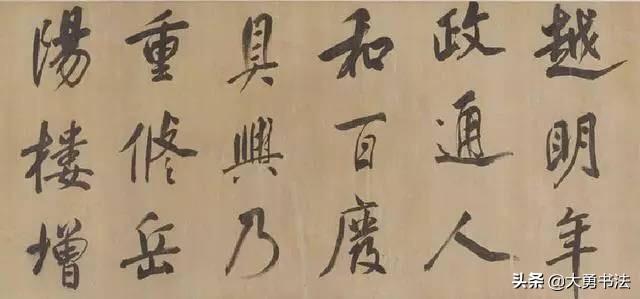 越明年
政通人
和百废
具興乃
重修岳
陽楼增
头条 @大勇书法